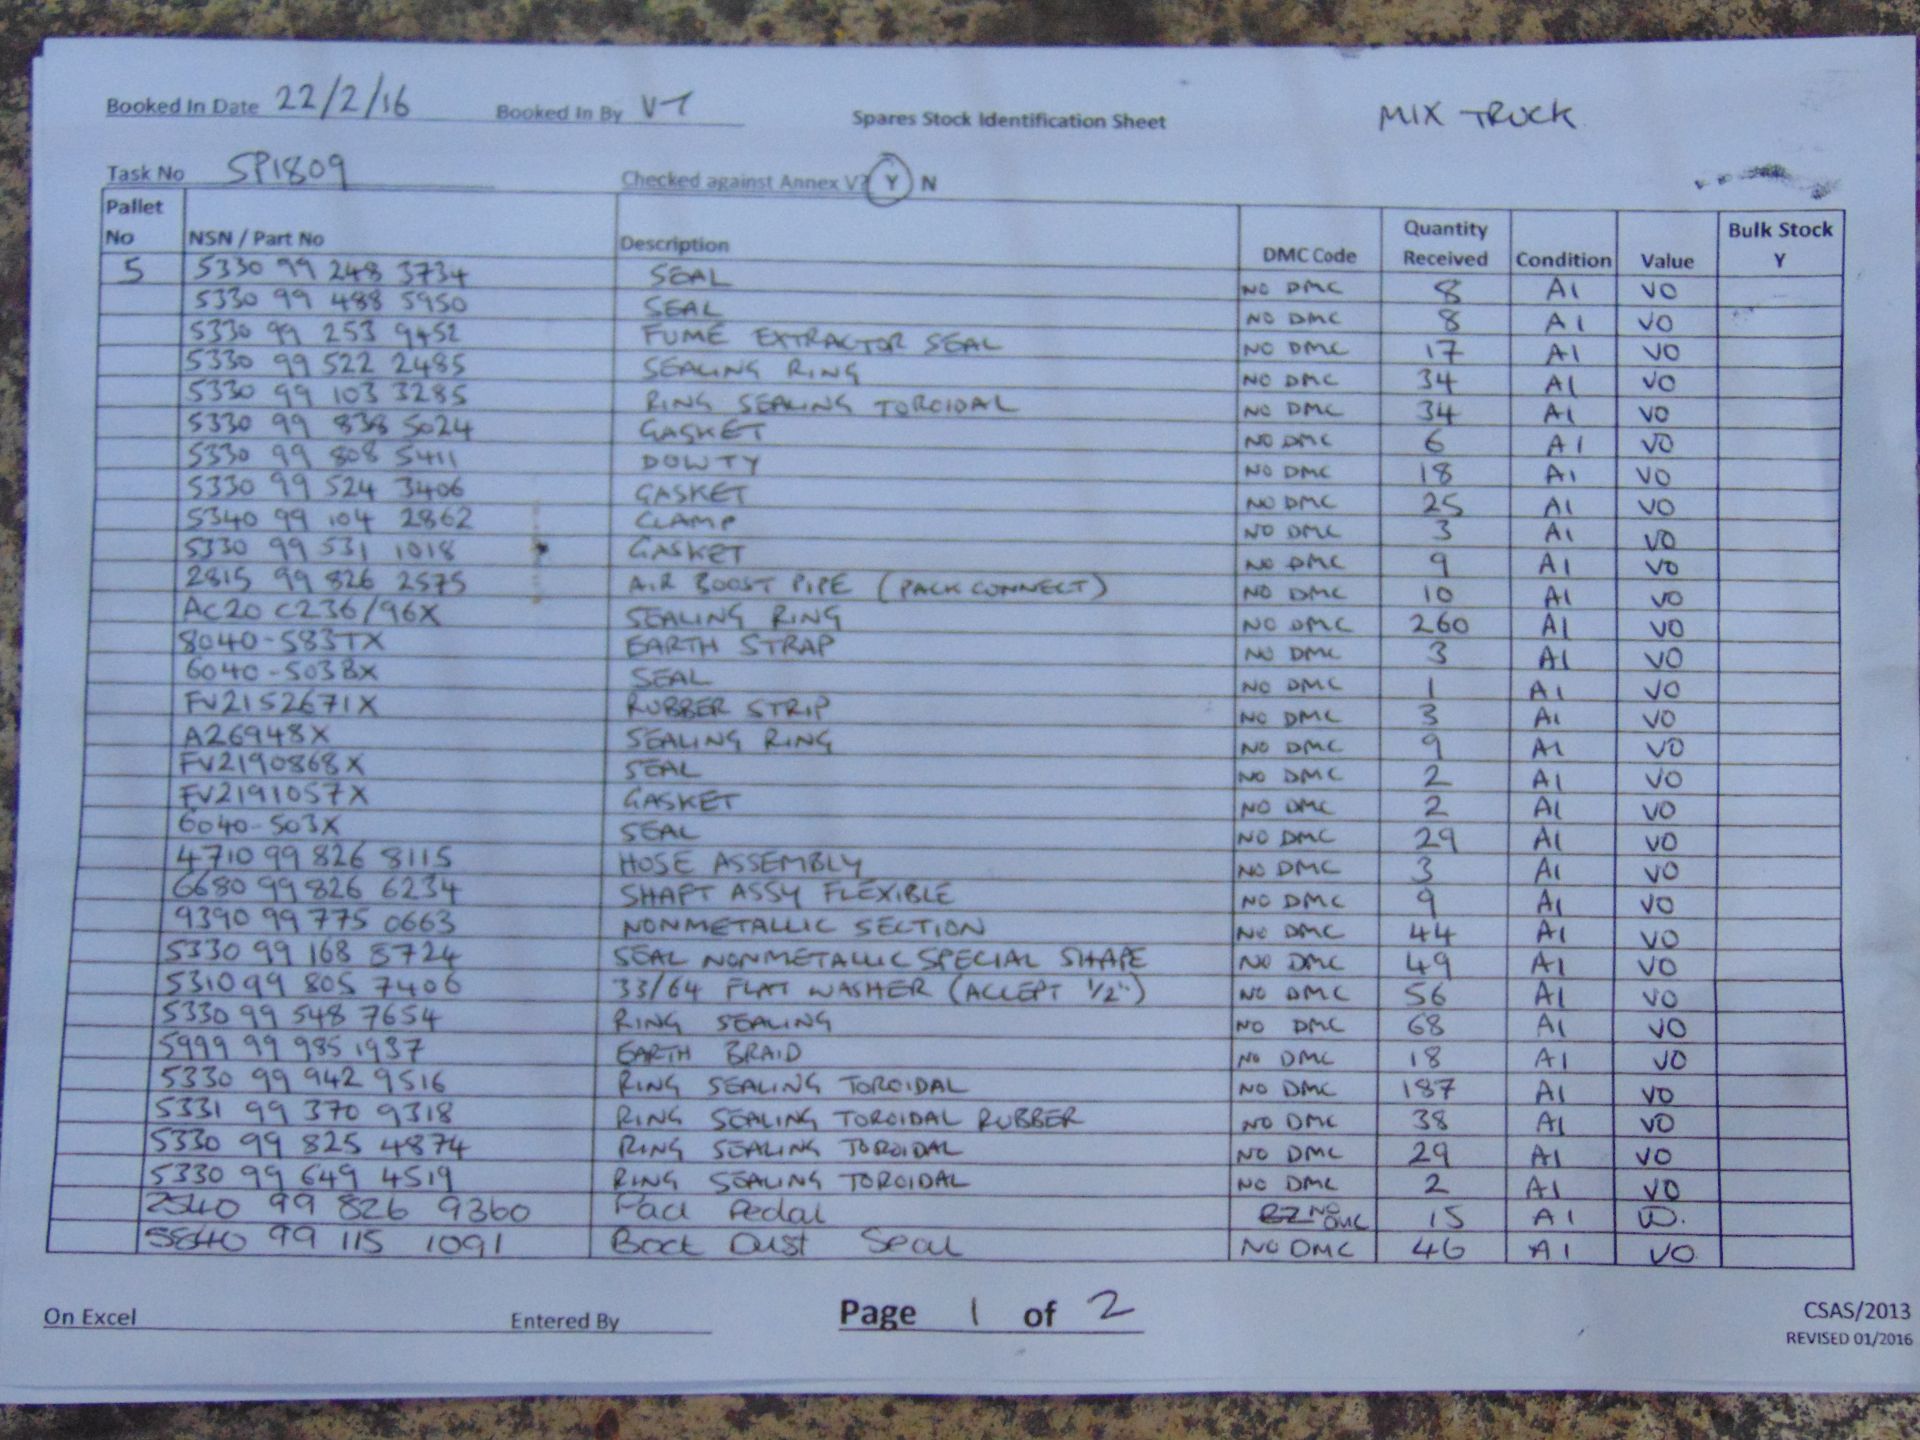 Booked In Date 22/2/16 Booked In By VT Spares Stock Identification Sheet MIX TRUCK
Task No SP1809 Checked against Annex V? Y N
Pallet No NSN / Part No Description DMC Code Quantity Received Condition Value Bulk Stock Y
5 5330 99 248 3734 SEAL NO DMC 8 A1 VO
5330 99 488 5950 SEAL NO DMC 8 A1 VO
5330 99 253 9452 FUME EXTRACTOR SEAL NO DMC 17 A1 VO
5330 99 522 2485 SEALING RING NO DMC 34 A1 VO
5330 99 103 3285 RING SEALING TOROIDAL NO DMC 34 A1 VO
5330 99 838 5024 GASKET NO DMC 6 A1 VO
5330 99 808 5411 DOWTY NO DMC 18 A1 VO
5330 99 524 3406 GASKET NO DMC 25 A1 VO
5340 99 104 2862 CLAMP NO DMC 3 A1 VO
5330 99 531 1018 GASKET NO DMC 9 A1 VO
2815 99 826 2575 AIR BOOST PIPE (PACK CONNECT) NO DMC 10 A1 VO
AC20 C236/96X SEALING RING NO DMC 260 A1 VO
8040-583TX EARTH STRAP NO DMC 3 A1 VO
6040-503BX SEAL NO DMC 1 A1 VO
FV2152671X RUBBER STRIP NO DMC 3 A1 VO
A26948X SEALING RING NO DMC 9 A1 VO
FV2190868X SEAL NO DMC 2 A1 VO
FV2191057X GASKET NO DMC 2 A1 VO
6040-503X SEAL NO DMC 29 A1 VO
4710 99 826 8115 HOSE ASSEMBLY NO DMC 3 A1 VO
6680 99 826 6234 SHAFT ASSY FLEXIBLE NO DMC 9 A1 VO
9390 99 775 0663 NONMETALLIC SECTION NO DMC 44 A1 VO
5330 99 168 8724 SEAL NONMETALLIC SPECIAL SHAPE NO DMC 49 A1 VO
5310 99 805 7406 33/64 FLAT WASHER (ACCEPT 1/2") NO DMC 56 A1 VO
5330 99 548 7654 RING SEALING NO DMC 68 A1 VO
5999 99 985 1937 EARTH BRAID NO DMC 18 A1 VO
5330 99 942 9516 RING SEALING TOROIDAL NO DMC 187 A1 VO
5331 99 370 9318 RING SEALING TOROIDAL RUBBER NO DMC 38 A1 VO
5330 99 825 4874 RING SEALING TOROIDAL NO DMC 29 A1 VO
5330 99 649 4519 RING SEALING TOROIDAL NO DMC 2 A1 VO
2540 99 826 9360 Pad Pedal NO DMC 15 A1 VO.
5840 99 115 1091 Dust Seal NO DMC 46 A1 VO
On Excel Entered By Page 1 of 2 CSAS/2013
REVISED 01/2016